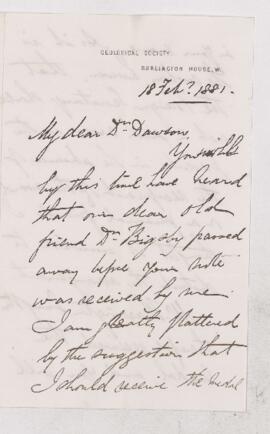 GEOLOGICAL SOCIETY,
BURLINGTON HOUSE, W.
18 Feby. 1881.
My dear Dr. Dawson,
You will
by this time have heard
that our dear old
friend Dr. Bigsby passed
away before your note
was received by me.
I am greatly flattered
by the suggestion that
I should receive the medal